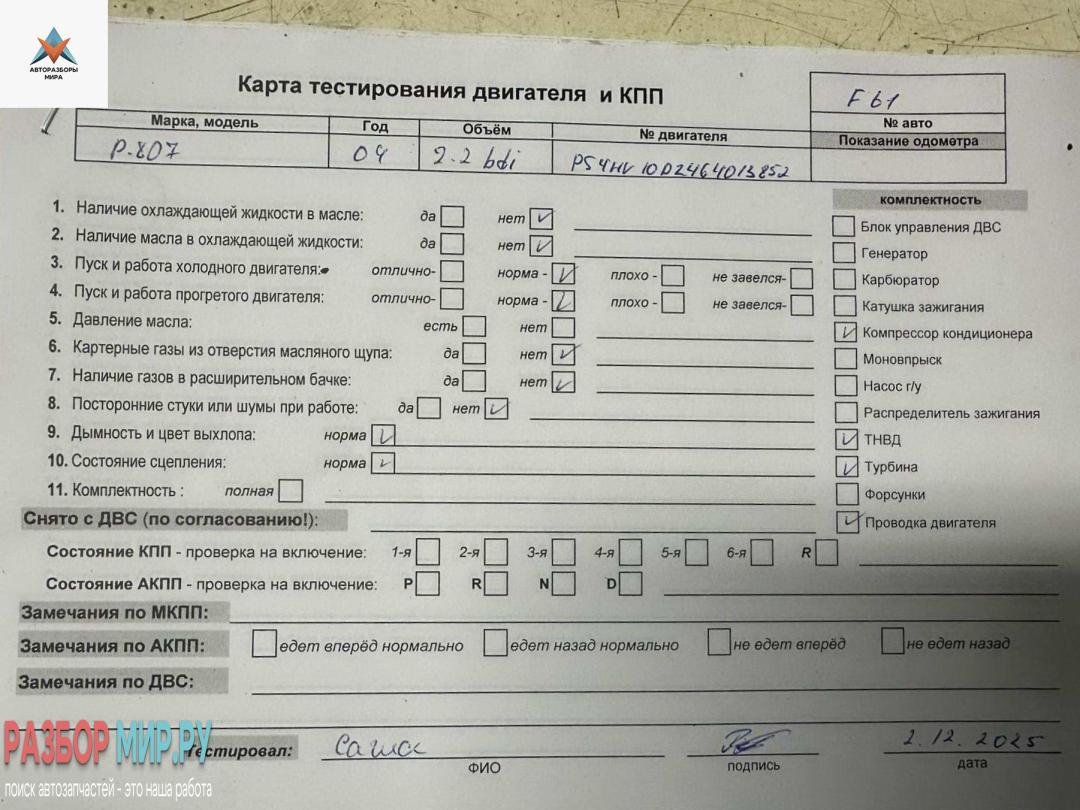 АВТОРАЗБОРЫ
МИРА
Карта тестирования двигателя и КПП
F 61
№ авто
Марка, модель Год Объём № двигателя Показание одометра
P.807 04 2.2 hdi PS4HV 10DZ464013852
1. Наличие охлаждающей жидкости в масле: да нет
2. Наличие масла в охлаждающей жидкости: да нет
3. Пуск и работа холодного двигателя: отлично- норма - плохо - не завелся-
4. Пуск и работа прогретого двигателя: отлично- норма - плохо - не завелся-
5. Давление масла: есть нет
6. Картерные газы из отверстия масляного щупа: да нет
7. Наличие газов в расширительном бачке: да нет
8. Посторонние стуки или шумы при работе: да нет
9. Дымность и цвет выхлопа: норма
10. Состояние сцепления: норма
11. Комплектность : полная
комплектность
Блок управления ДВС
Генератор
Карбюратор
Катушка зажигания
Компрессор кондиционера
Моновпрыск
Насос г/у
Распределитель зажигания
ТНВД
Турбина
Форсунки
Проводка двигателя
Снято с ДВС (по согласованию!):
Состояние КПП - проверка на включение: 1-я 2-я 3-я 4-я 5-я 6-я R
Состояние АКПП - проверка на включение: P R N D
Замечания по МКПП:
Замечания по АКПП: едет вперёд нормально едет назад нормально не едет вперёд не едет назад
Замечания по ДВС:
Тестировал: Саша 2.12.2025
ФИО подпись дата
РАЗБОР МИР.РУ
поиск автозапчастей - это наша работа